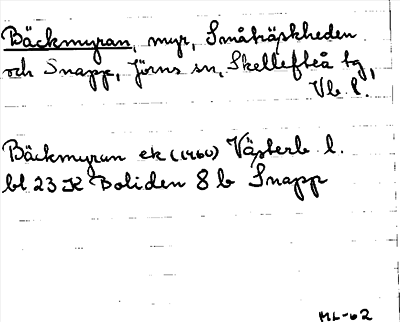 Bäckmyran, myr, Småträskheden
och Snapp, Jörns sn, Skellefteå tg,
Vb l.
Bäckmyran ek (1960) Västerb l.
bl 23 K Boliden 8 b Snapp
ML-62